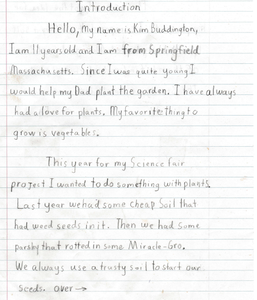 Introduction
Hello, my name is Kim Buddington,
I am 11 years old and I am from Springfield
Massachusetts. Since I was quite young I
would help my Dad plant the garden. I have always
had a love for plants. My favorite thing to
grow is vegetables.
This year for my Science fair
project I wanted to do something with plants.
Last year we had some cheap Soil that
had weed seeds in it. Then we had some
parsley that rotted in some Miracle-Gro.
We always use a trusty soil to start our
seeds. over →